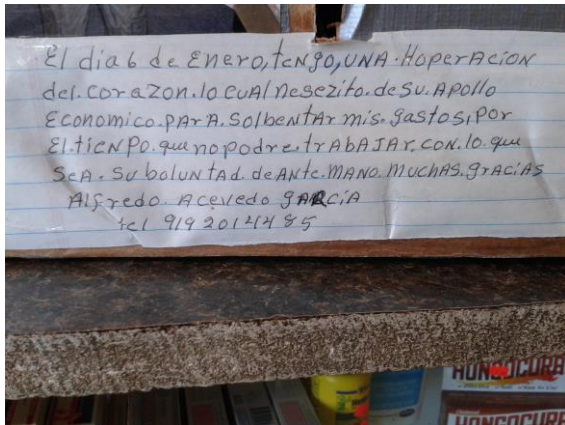 El dia 6 de Enero, tengo, UNA. HoperAcion
del. corazon. lo cuAl nesezito. de su. Apollo
Economico. pArA. Solbentar mis. gastos, por
El. tienpo. que no podre. trAbAJAr. con. lo. que
SeA. Su boluntad. de Ante. mano. muchas. grAciAs
Alfredo. Acevedo gARciA
tel 919 201 44 85
HONGOCURA
HONGOCURA